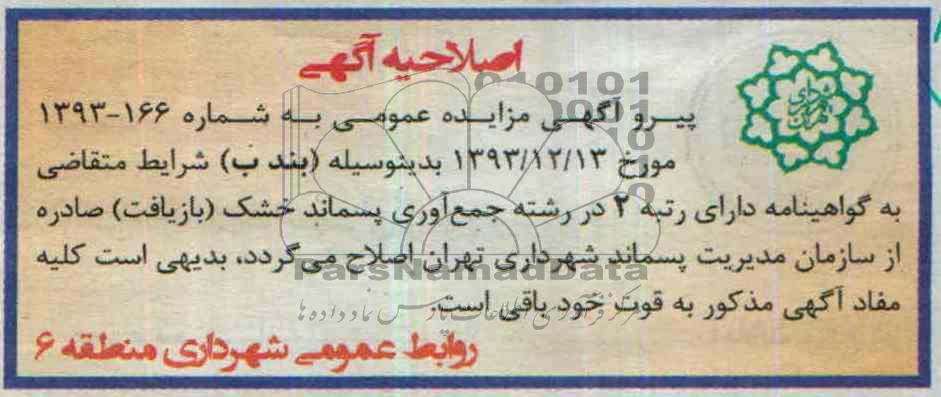 اصلاحیه آگهی
پیرو آگهی مزایده عمومی به شماره ۱۶۶-۱۳۹۳
مورخ ۱۳۹۳/۱۲/۱۳ بدینوسیله (بند ب) شرایط متقاضی
به گواهینامه دارای رتبه ۲ در رشته جمع‌آوری پسماند خشک (بازیافت) صادره
از سازمان مدیریت پسماند شهرداری تهران اصلاح می‌گردد، بدیهی است کلیه
مفاد آگهی مذکور به قوت خود باقی است.
روابط عمومی شهرداری منطقه ۶
ParsNamadData